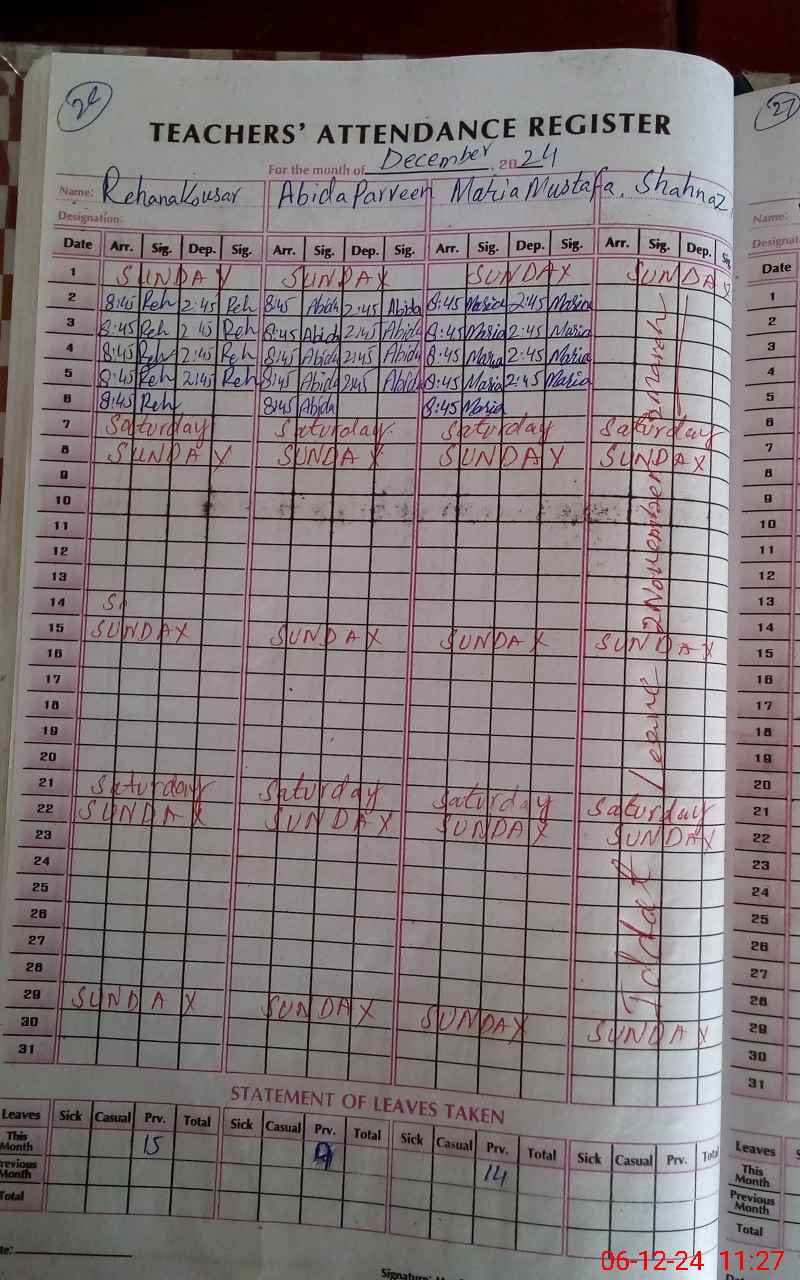 26
TEACHERS' ATTENDANCE REGISTER
For the month of December, 2024
Name: Rehana Kousar Abida Parveen Maria Mustafa, Shahnaz
Designation:
Date Arr. Sig. Dep. Sig. Arr. Sig. Dep. Sig. Arr. Sig. Dep. Sig. Arr. Sig. Dep.
1 SUNDAY SUNDAY SUNDAY SUNDAY
2 8:45 Reh 2:45 Reh 8:45 Abida 2:45 Abida 8:45 Maria 2:45 Maria
3 8:45 Reh 2:45 Reh 8:45 Abida 2:45 Abida 8:45 Maria 2:45 Maria
4 8:45 Reh 2:45 Reh 8:45 Abida 2:45 Abida 8:45 Maria 2:45 Maria
5 8:45 Reh 2:45 Reh 8:45 Abida 2:45 Abida 8:45 Maria 2:45 Maria
6 8:45 Reh 8:45 Abida 8:45 Maria
7 Saturday Saturday. Saturday Saturday
8 SUNDAY SUNDAY SUNDAY SUNDAY
9
10
11
12
13
14 Sa
15 SUNDAY SUNDAY SUNDAY SUNDAY
16
17
18
19
20
21 Saturday Saturday Saturday Saturday
22 SUNDAY SUNDAY SUNDAY SUNDAY
23
24
25
26
27
28
29 SUNDAY SUNDAY SUNDAY SUNDAY
30
31
Iddat Leave 2 November 2 March
STATEMENT OF LEAVES TAKEN
Leaves Sick Casual Prv. Total Sick Casual Prv. Total Sick Casual Prv. Total Sick Casual Prv.
This Month 15 14
Previous Month
Total
Signature:
27
Name:
Date
1
2
3
4
5
6
7
8
9
10
11
12
13
14
15
16
17
18
19
20
21
22
23
24
25
26
27
28
29
30
31
Leaves
This Month
Previous Month
Total
06-12-24 11:27